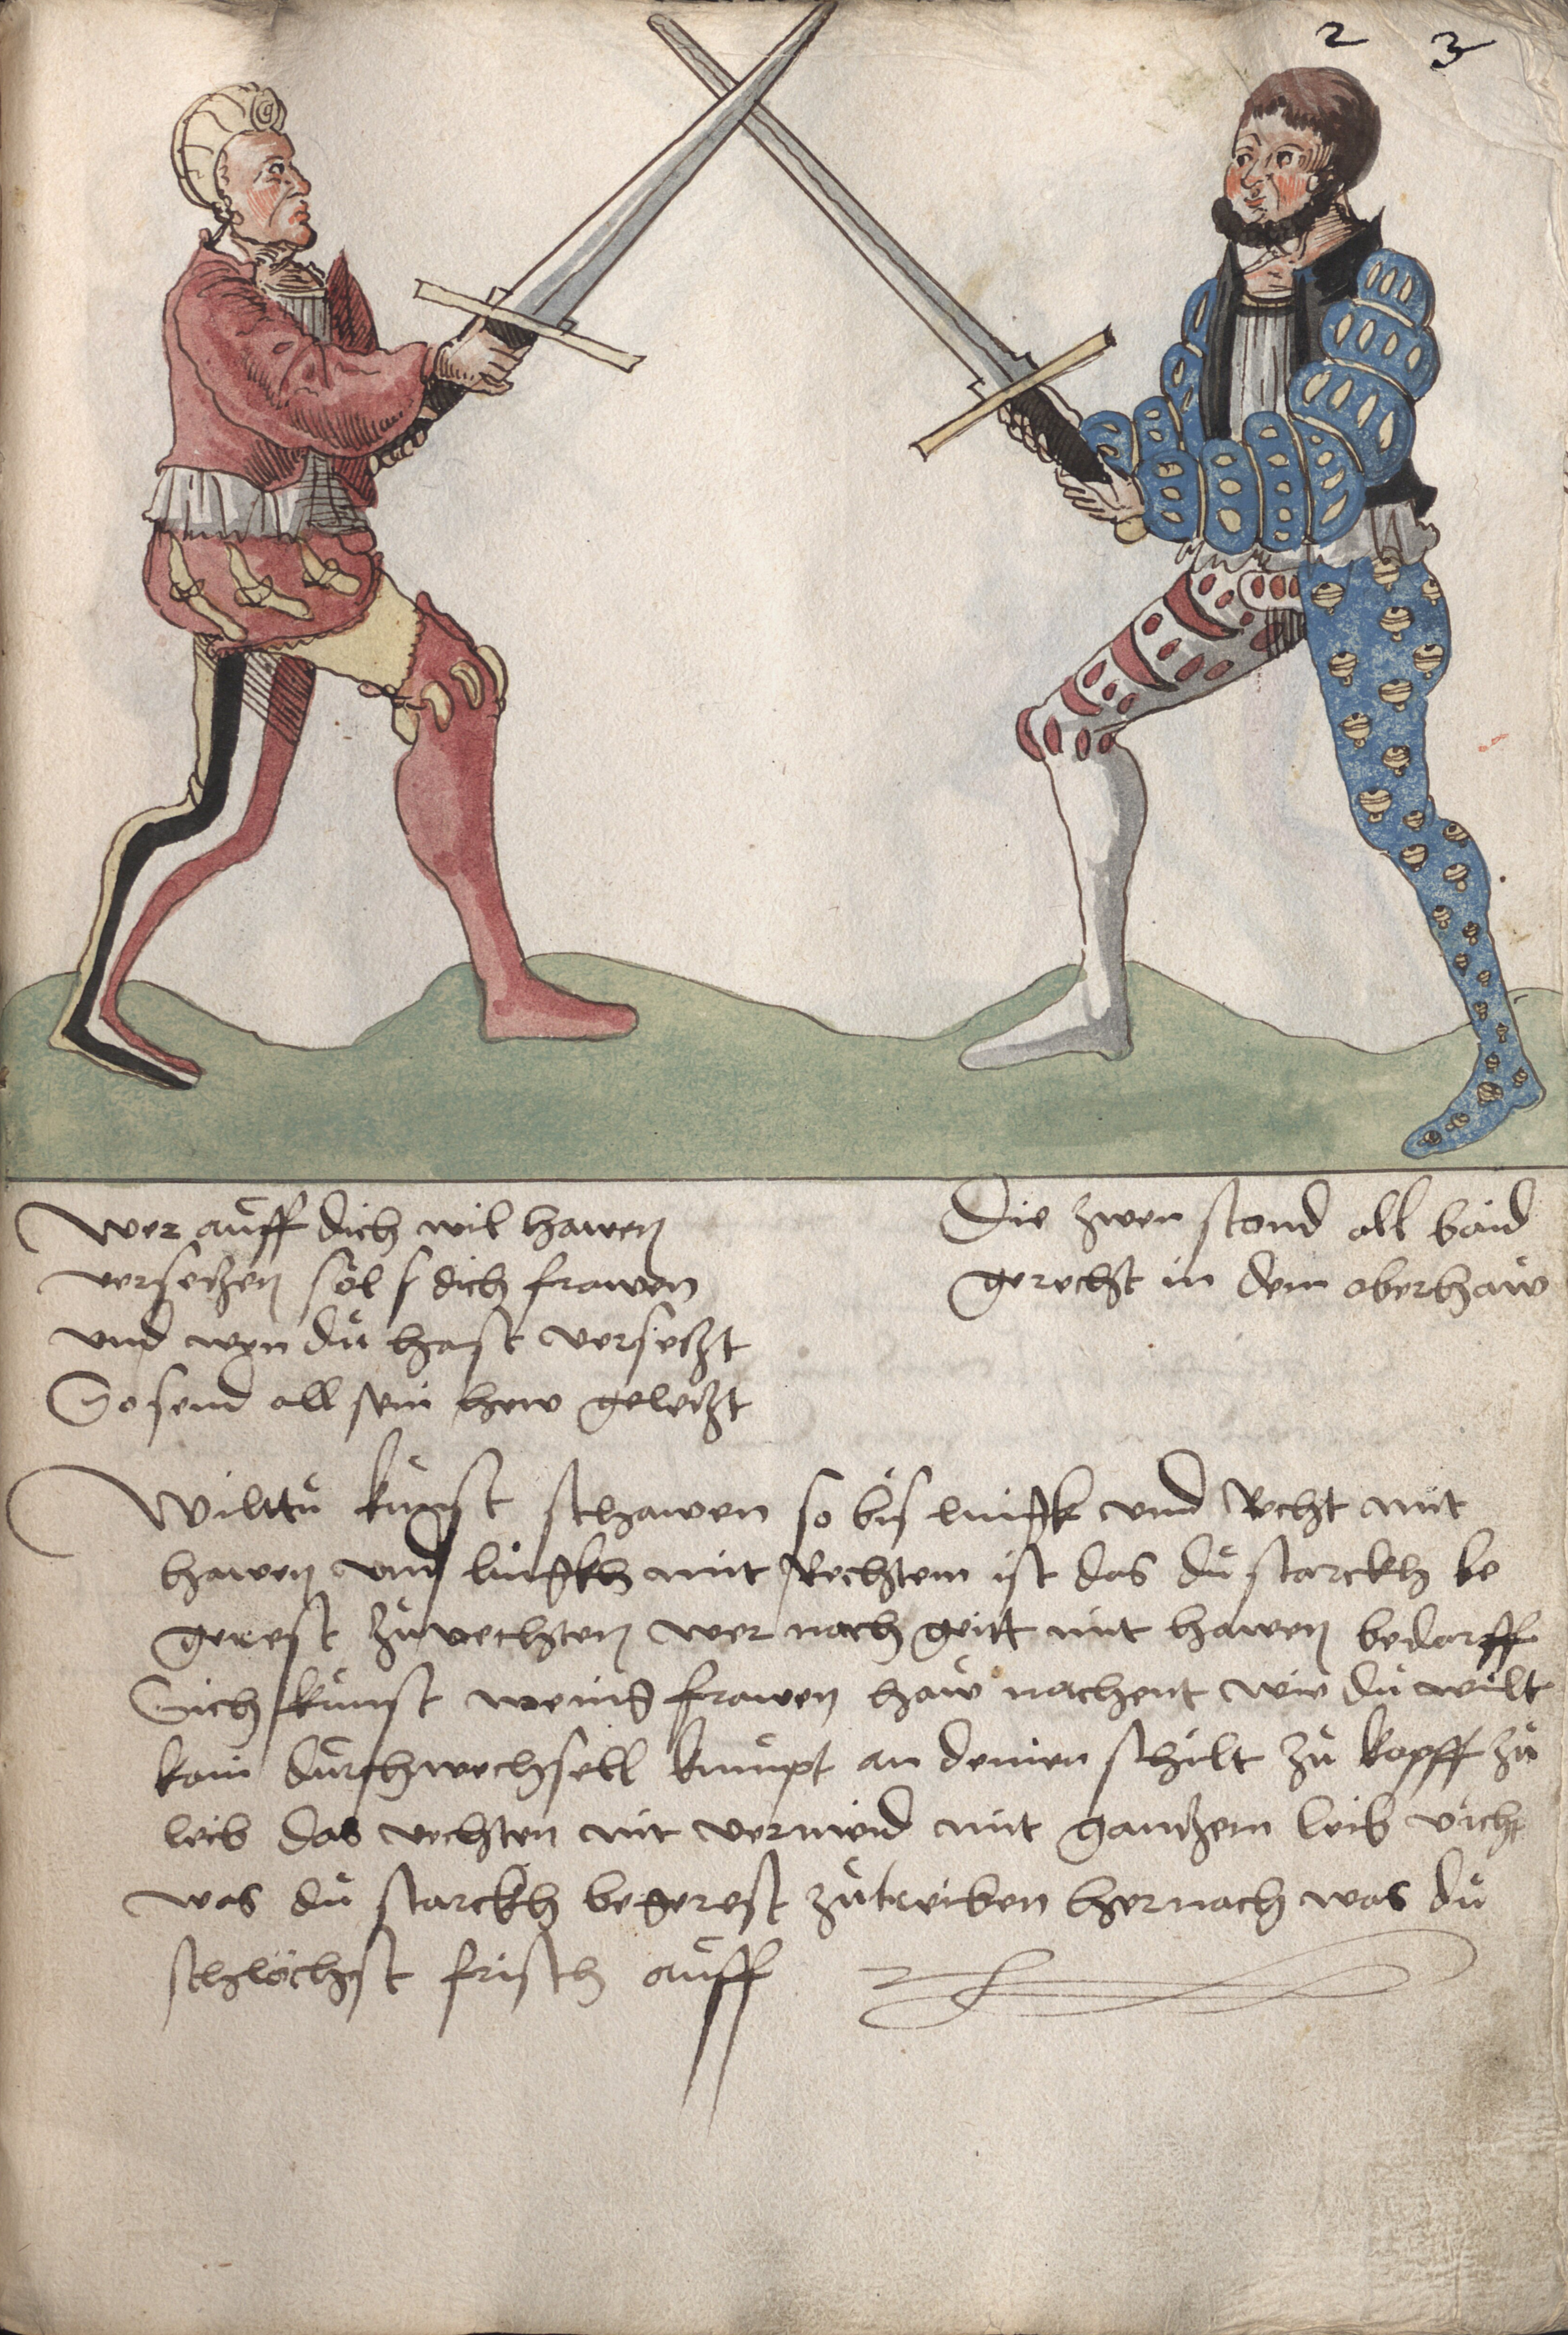 2 3
Wer auff dich wil hawen
versetzen sol s dich frawen
und wen du hast versetzt
So send all sein hew geletzt
Die zwen stond all baid
gerecht in dem oberhaw
Wilttu kunst schawen so bis lingk und Recht mit
hawen und lingkh mit Rechtem ist das du starckh be
gerest zuvechten wer nach geitt mit hawen bedarff
Sich kunst wening frawen haw nachent wie du wilt
kain durchwechsell kumpt an deinen schilt zu kopff zu
leib das vechten nit vermeid mit gantzem leib vicht
was du starckh begerest zutreiben hernach was du
schlöchst frisch auff